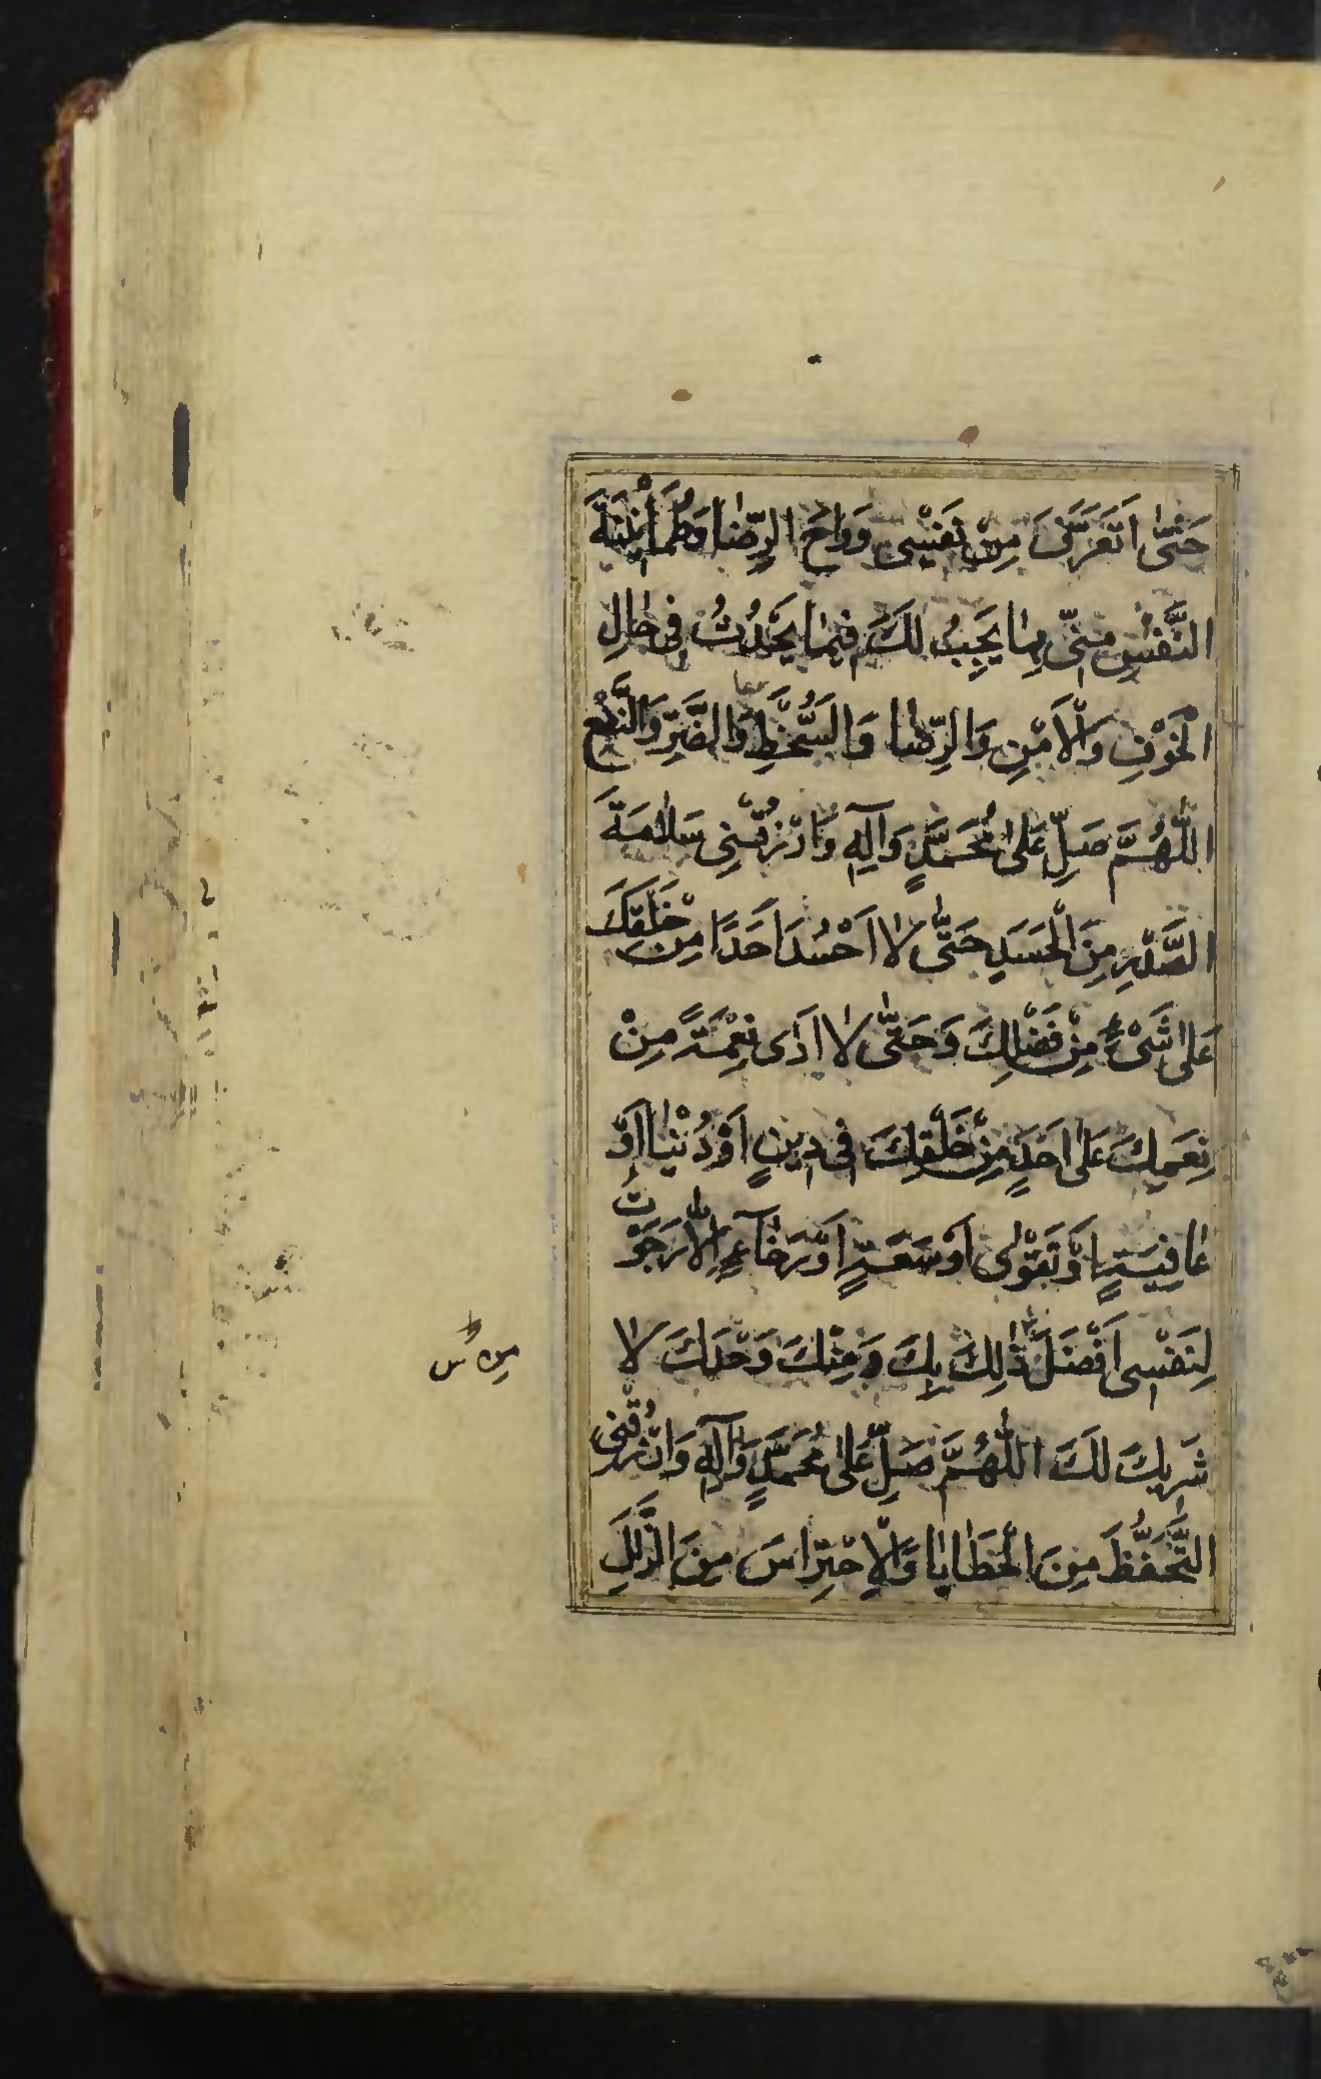 حَتّٰى اَتَعَرَّفَ مِنْ نَفْسِى رَوْحَ الرِّضٰا وَطُمَأْنِيْنَةَ
النَّفْسِ مِنّى بِمٰا يَجِبُ لَكَ فيمٰا يَحْدُثُ فى حٰالِ
الْخَوْفِ وَالْاَمْنِ وَالرِّضٰا وَالسُّخْطِ وَالضَّرِّ وَالنَّفْعِ
اللّٰهُمَّ صَلِّ عَلٰى مُحَمَّدٍ وَآلِهِ وَارْزُقْنِى سَلٰامَةَ
الصَّدْرِ مِنَ الْحَسَدِ حَتّٰى لٰا اَحْسُدَ اَحَدًا مِنْ خَلْقِكَ
عَلٰى شَىْءٍ مِنْ فَضْلِكَ وَحَتّٰى لٰا اَرٰى نِعْمَةً مِنْ
نِعَمِكَ عَلٰى اَحَدٍ مِنْ خَلْقِكَ فى دينٍ اَوْ دُنْيٰا اَوْ
عٰافِيَةٍ اَوْ تَقْوٰى اَوْ سَعَةٍ اَوْ رَخٰآءٍ اِلّٰا رَجَوْتُ
لِنَفْسِى اَفْضَلَ ذٰلِكَ بِكَ وَمِنْكَ وَحْدَكَ لٰا
شَرِيكَ لَكَ اللّٰهُمَّ صَلِّ عَلٰى مُحَمَّدٍ وَآلِهِ وَارْزُقْنِى
التَّحَفُّظَ مِنَ الْخَطٰايٰا وَالْاِحْتِرٰاسَ مِنَ الزَّلَلِ